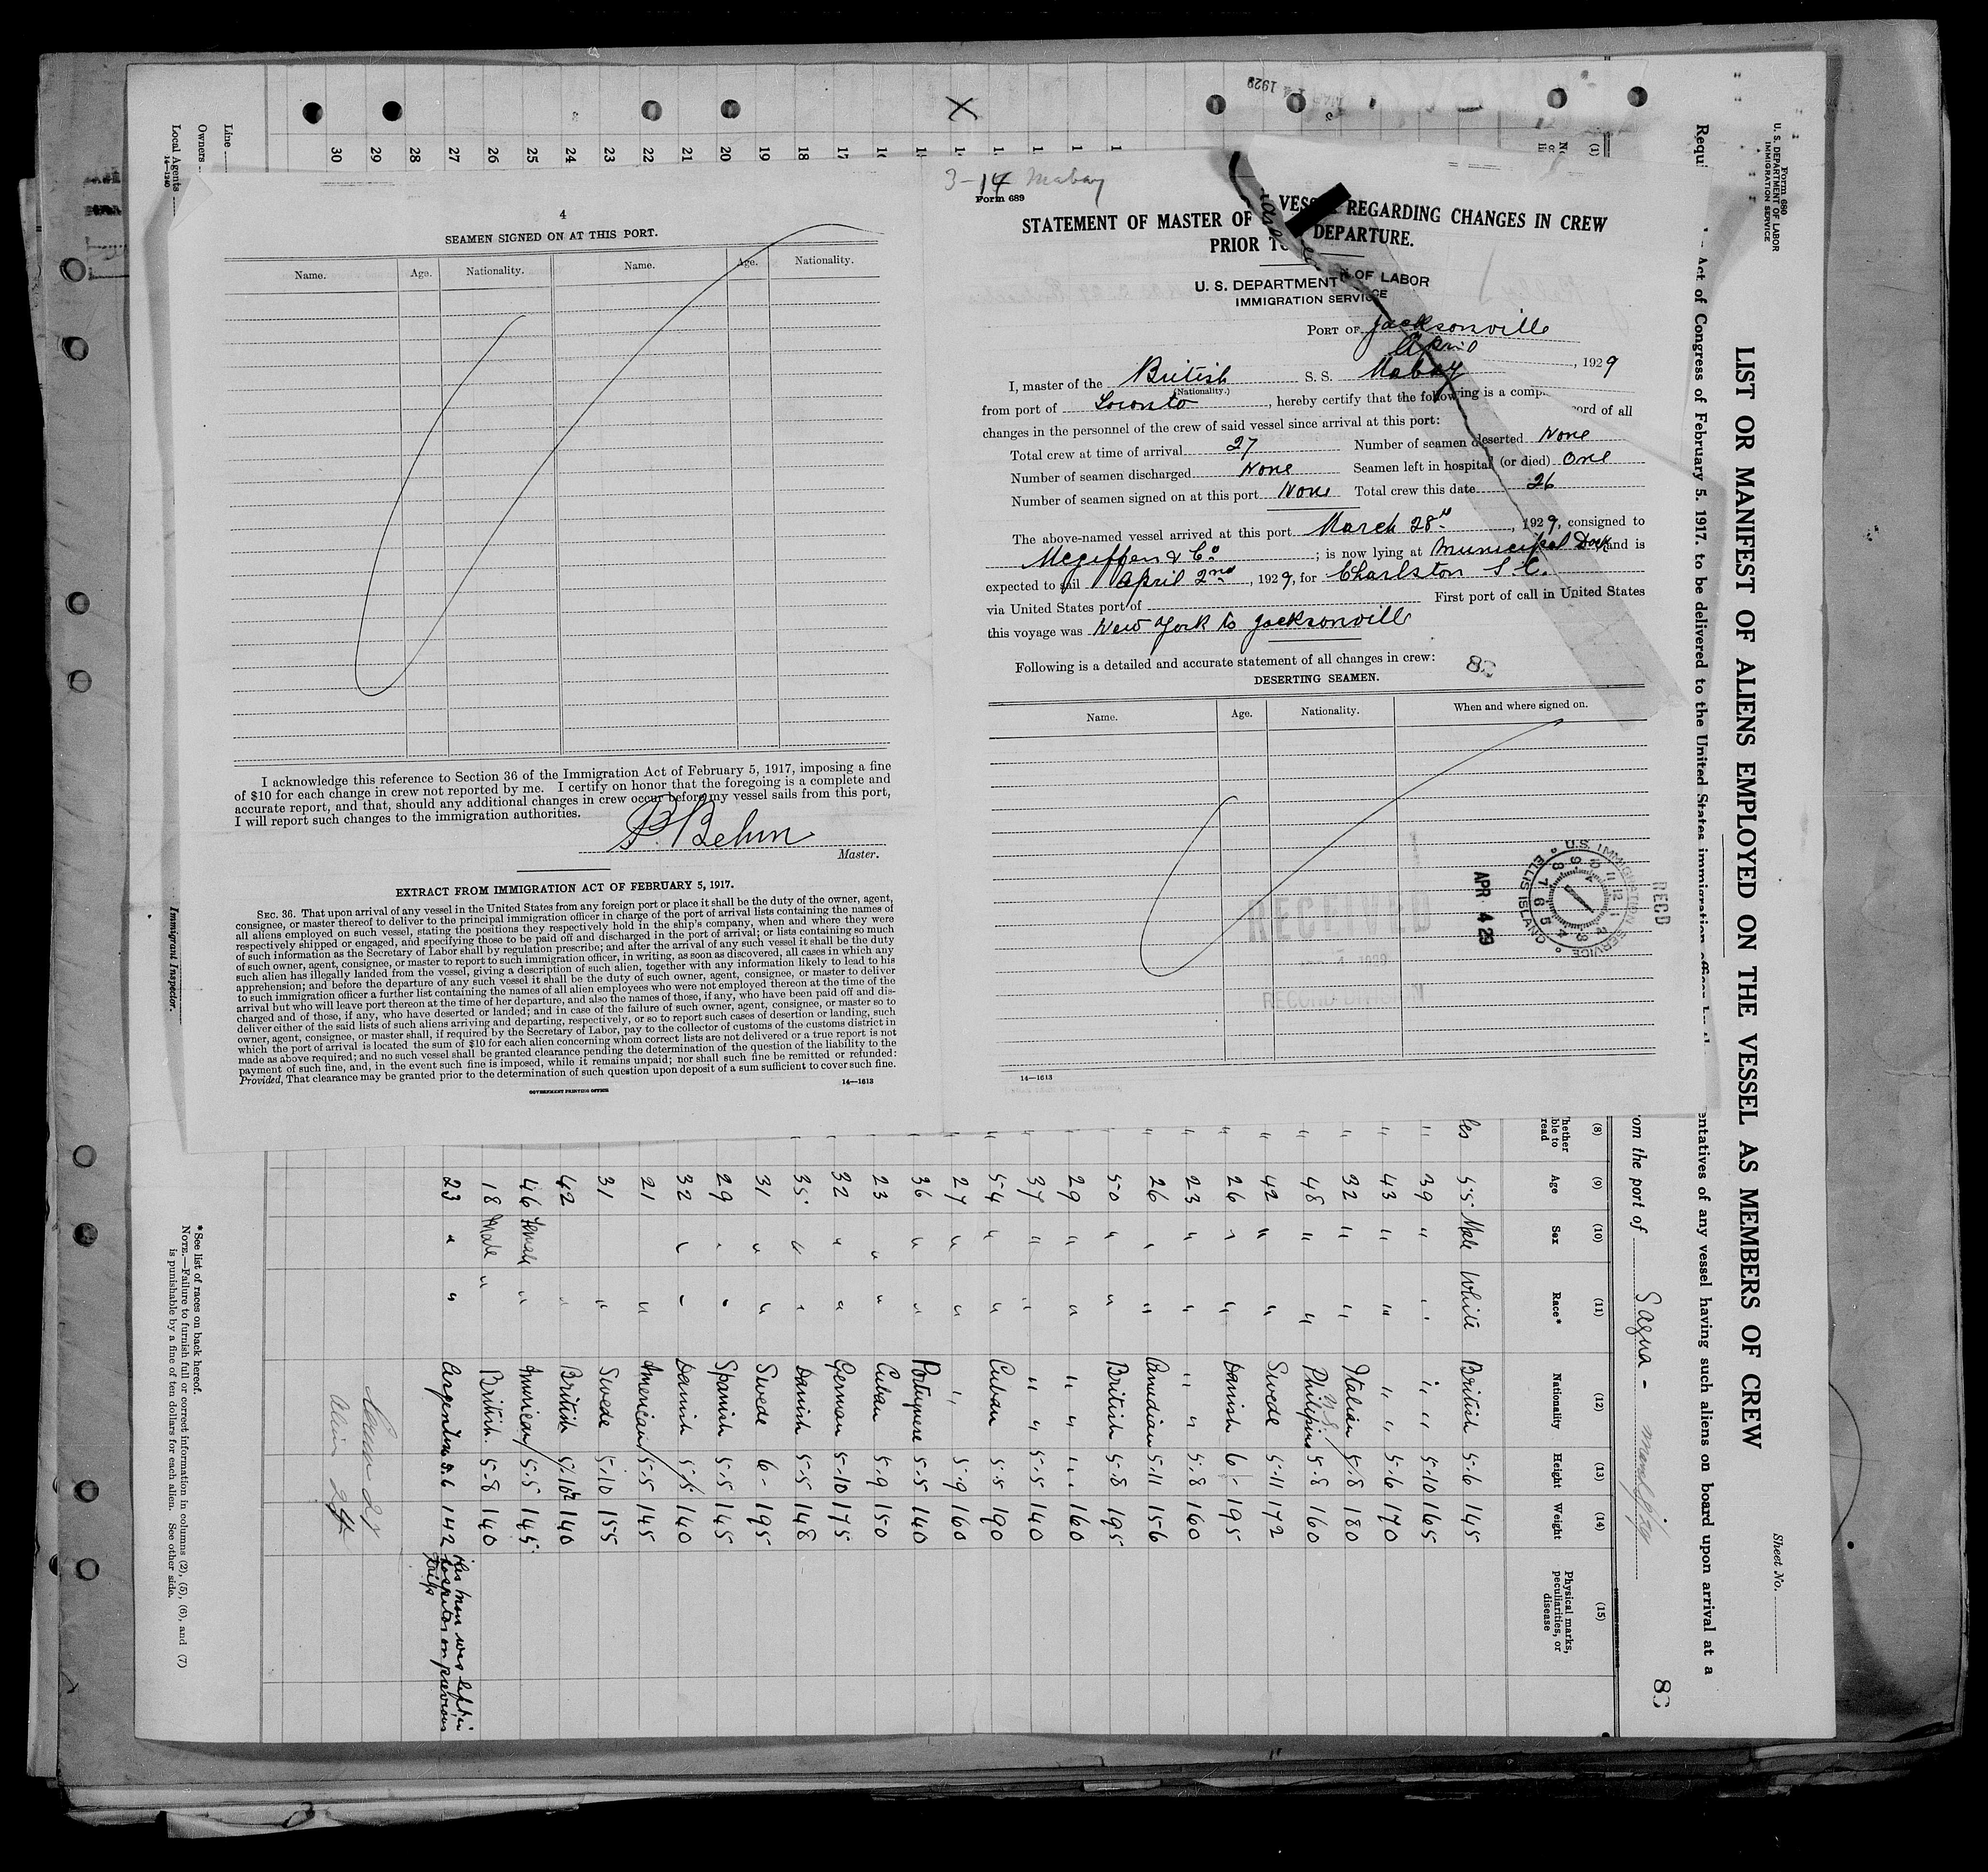 3-14 Mabay
4
SEAMEN SIGNED ON AT THIS PORT.
Name. Age. Nationality. Name. Age. Nationality.
I acknowledge this reference to Section 36 of the Immigration Act of February 5, 1917, imposing a fine
of $10 for each change in crew not reported by me. I certify on honor that the foregoing is a complete and
accurate report, and that, should any additional changes in crew occur before my vessel sails from this port,
I will report such changes to the immigration authorities.
P. Behm
Master.
EXTRACT FROM IMMIGRATION ACT OF FEBRUARY 5, 1917.
SEC. 36. That upon arrival of any vessel in the United States from any foreign port or place it shall be the duty of the owner, agent,
consignee, or master thereof to deliver to the principal immigration officer in charge of the port of arrival lists containing the names of
all aliens employed on such vessel, stating the positions they respectively hold in the ship's company, when and where they were
respectively shipped or engaged, and specifying those to be paid off and discharged in the port of arrival; or lists containing so much
of such information as the Secretary of Labor shall by regulation prescribe; and after the arrival of any such vessel it shall be the duty
of such owner, agent, consignee, or master to report to such immigration officer, in writing, as soon as discovered, all cases in which any
such alien has illegally landed from the vessel, giving a description of such alien, together with any information likely to lead to his
apprehension; and before the departure of any such vessel it shall be the duty of such owner, agent, consignee, or master to deliver
to such immigration officer a further list containing the names of all alien employees who were not employed thereon at the time of the
arrival but who will leave port thereon at the time of her departure, and also the names of those, if any, who have been paid off and dis-
charged and of those, if any, who have deserted or landed; and in case of the failure of such owner, agent, consignee, or master so to
deliver either of the said lists of such aliens arriving and departing, respectively, or so to report such cases of desertion or landing, such
owner, agent, consignee, or master shall, if required by the Secretary of Labor, pay to the collector of customs of the customs district in
which the port of arrival is located the sum of $10 for each alien concerning whom correct lists are not delivered or a true report is not
made as above required; and no such vessel shall be granted clearance pending the determination of the question of the liability to the
payment of such fine, and, in the event such fine is imposed, while it remains unpaid; nor shall such fine be remitted or refunded:
Provided, That clearance may be granted prior to the determination of such question upon deposit of a sum sufficient to cover such fine.
GOVERNMENT PRINTING OFFICE 14—1613
Form 689
STATEMENT OF MASTER OF VESSEL REGARDING CHANGES IN CREW
PRIOR TO DEPARTURE.
U. S. DEPARTMENT OF LABOR
IMMIGRATION SERVICE
PORT OF Jacksonville
April, 1929
I, master of the British S. S. Mabay
(Nationality.)
from port of Loronto, hereby certify that the following is a comp ord of all
changes in the personnel of the crew of said vessel since arrival at this port:
Total crew at time of arrival 27 Number of seamen deserted None
Number of seamen discharged None Seamen left in hospital (or died) One
Number of seamen signed on at this port None Total crew this date 26
The above-named vessel arrived at this port March 28th, 1929, consigned to
Mcgiffen & Co; is now lying at Municipal Dock and is
expected to sail April 2nd, 1929, for Charlston S.C.
via United States port of First port of call in United States
this voyage was New York to Jacksonville
Following is a detailed and accurate statement of all changes in crew:
DESERTING SEAMEN.
Name. Age. Nationality. When and where signed on.
RECEIVED
RECORD DIVISION
RECD
APR 4 29
U.S. IMMIGRATION SERVICE
ELLIS ISLAND
14—1613
Form 680
U. S. DEPARTMENT OF LABOR
IMMIGRATION SERVICE
Sheet No.
LIST OR MANIFEST OF ALIENS EMPLOYED ON THE VESSEL AS MEMBERS OF CREW
Requi Act of Congress of February 5, 1917, to be delivered to the United States immigration entatives of any vessel having such aliens on board upon arrival at a
om the port of Sagua -
(8) (9) (10) (11) (12) (13) (14) (15)
hether able to read Age Sex Race* Nationality Height Weight Physical marks, peculiarities, or disease
55 Male White British 5-6 145
" 39 " " " " 5-10 165
" 43 " " " " 5-6 170
" 32 " " Italian 5-8 180
" 48 " " Philipins 5-8 160
" 42 " " Swede 5-11 172
" 26 " " Danish 6 - 195
" 23 " " " " 5-8 160
" 26 " " Canadian 5-11 156
" 50 " " British 5-8 195
" 29 " " " " " 160
" 37 " " " " 5-5 140
" 54 " " Cuban 5-5 190
" 27 " " " 5-9 160
36 " " Portuguese 5-5 140
23 " " Cuban 5-9 150
32 " " German 5-10 175
35 " " Danish 5-5 148
31 " " Swede 6- 195
29 " " Spanish 5-5 145
32 " " Danish 5-5 140
21 " American 5-5 145
31 " Swede 5-10 155
42 " British 5-10½ 140
46 Female " American 5-5 145
18 Male " British 5-8 140
23 " " Argentine 5-6 142 this man was left in hospital on previous trip
Alien 24
16 17 18 19 20 21 22 23 24 25 26 27 28 29 30
Line
Owners
Local Agents
14—1240
Immigrant Inspector.
*See list of races on back hereof.
NOTE.—Failure to furnish full or correct information in columns (2), (5), (6), and (7)
is punishable by a fine of ten dollars for each alien. See other side.